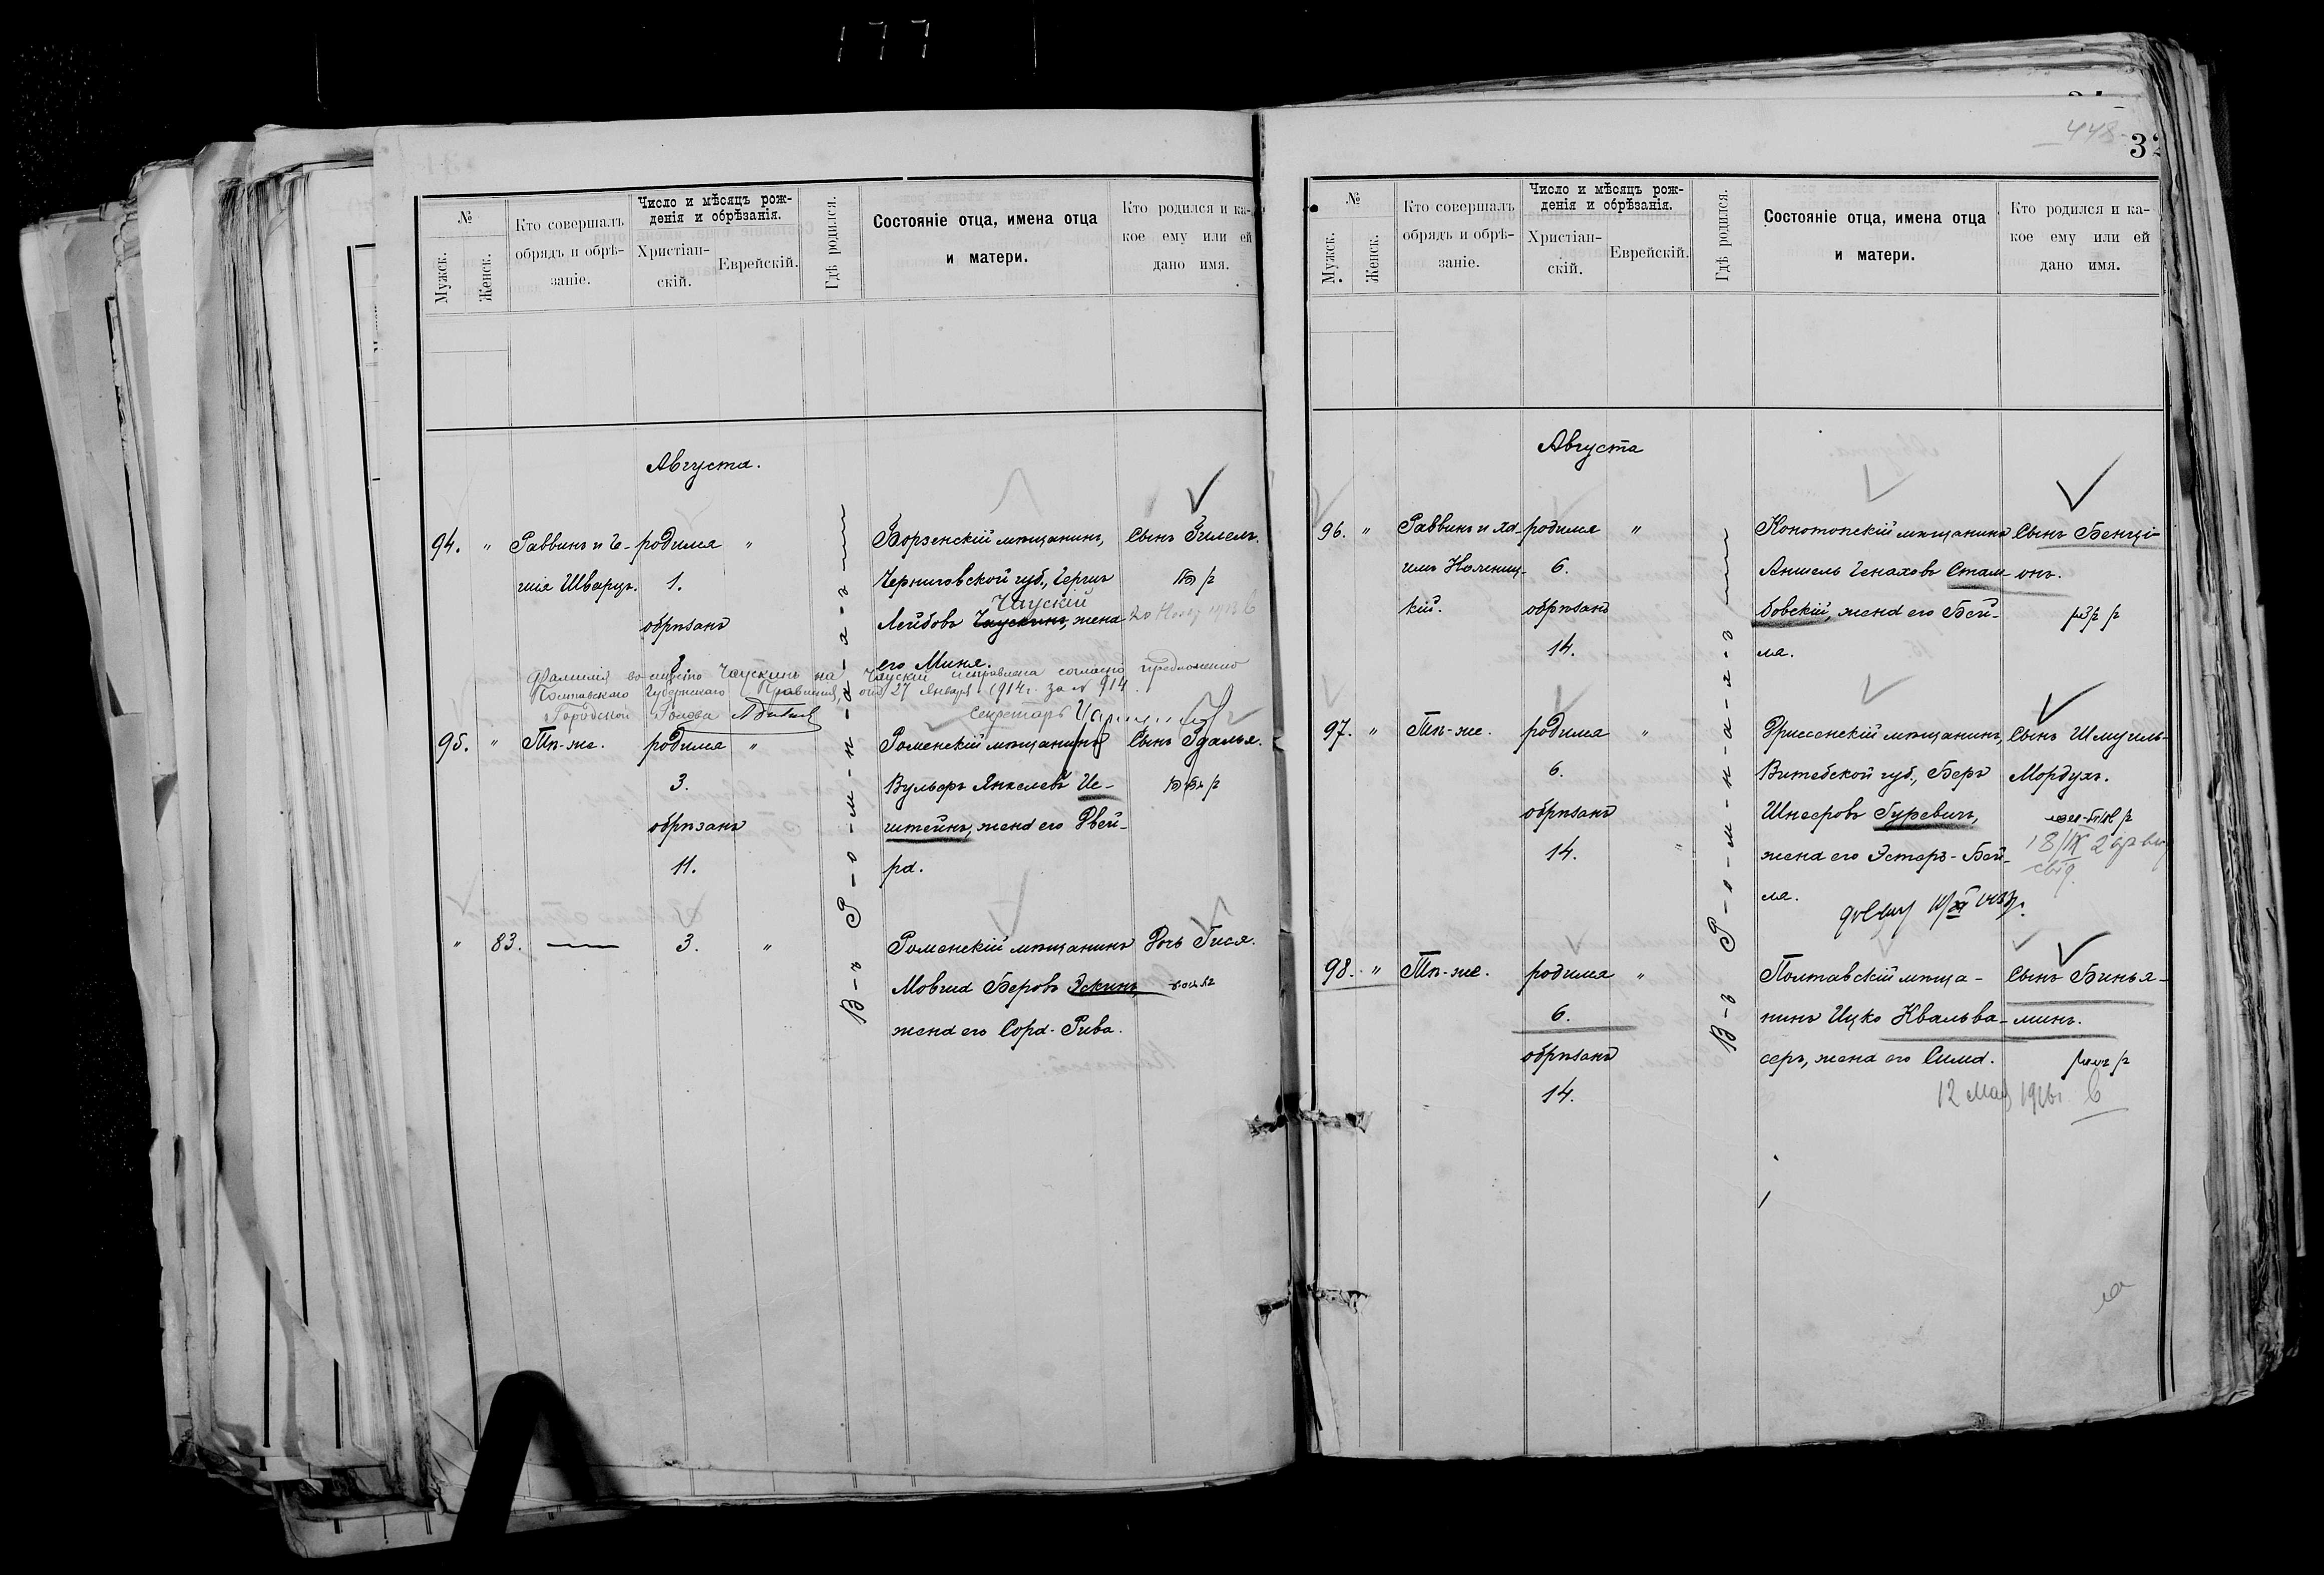 177
№
Мужск.
Женск.
Кто совершалъ
обрядъ и обрѣ-
заніе.
Число и мѣсяцъ рож-
денія и обрѣзанія.
Христіан-
скій.
Еврейскій.
Гдѣ родился.
Состояніе отца, имена отца
и матери.
Кто родился и ка-
кое ему или ей
дано имя.
Августа.
94. " Раввинъ и
шія Шварцъ.
родился "
1.
обрѣзанъ
8.
Борзенскій мѣщанинъ,
Черниговской губ., Герцъ
Чаускій
Лейбовъ Чаускинъ, жена
его Миня.
Сынъ Гилель.
Фамилія вмѣсто Чаускинъ на Чаускій исправлена согласно предложенію
Полтавскаго Губернскаго Правленія, отъ 27 Января 1914 г. за № 914.
Городской Голова
Секретарь
95. " Тѣ-же.
родился "
3.
обрѣзанъ
11.
Роменскій мѣщанинъ
Вульфъ Янкелевъ
жена его Двей-
ра.
Сынъ Гдалья.
" 83. —
3. "
Роменскій мѣщанинъ
Мовша Беровъ Эскинъ,
жена его Сора-Рива.
Дочь Гися.
В-ъ Р-о-м-н-а-х-ъ
448
32
№
Мужск.
Женск.
Кто совершалъ
обрядъ и обрѣ-
заніе.
Число и мѣсяцъ рож-
денія и обрѣзанія.
Христіан-
скій.
Еврейскій.
Гдѣ родился.
Состояніе отца, имена отца
и матери.
Кто родился и ка-
кое ему или ей
дано имя.
Августа
96. " Раввинъ и
кій.
родился "
6.
обрѣзанъ
14.
Конотопскій мѣщанинъ
Аншель Генаховъ Стам-
бовскій, жена его Бей-
ла.
Сынъ Бенці-
онъ.
97. " Тѣ-же.
родился "
6.
обрѣзанъ
14.
Дриссенскій мѣщанинъ,
Витебской губ., Беръ
Шнееровъ Гуревичъ,
жена его Эстеръ-Бей-
ла.
Сынъ Шмуиль-
Мордухъ.
18/IX
98. " Тѣ-же.
родился "
6.
обрѣзанъ
14.
Полтавскій мѣща-
нинъ Ицко Квальва-
серъ, жена его Сима.
Сынъ Бинья-
минъ.
12 мая 1916 г.
В-ъ Р-о-м-н-а-х-ъ